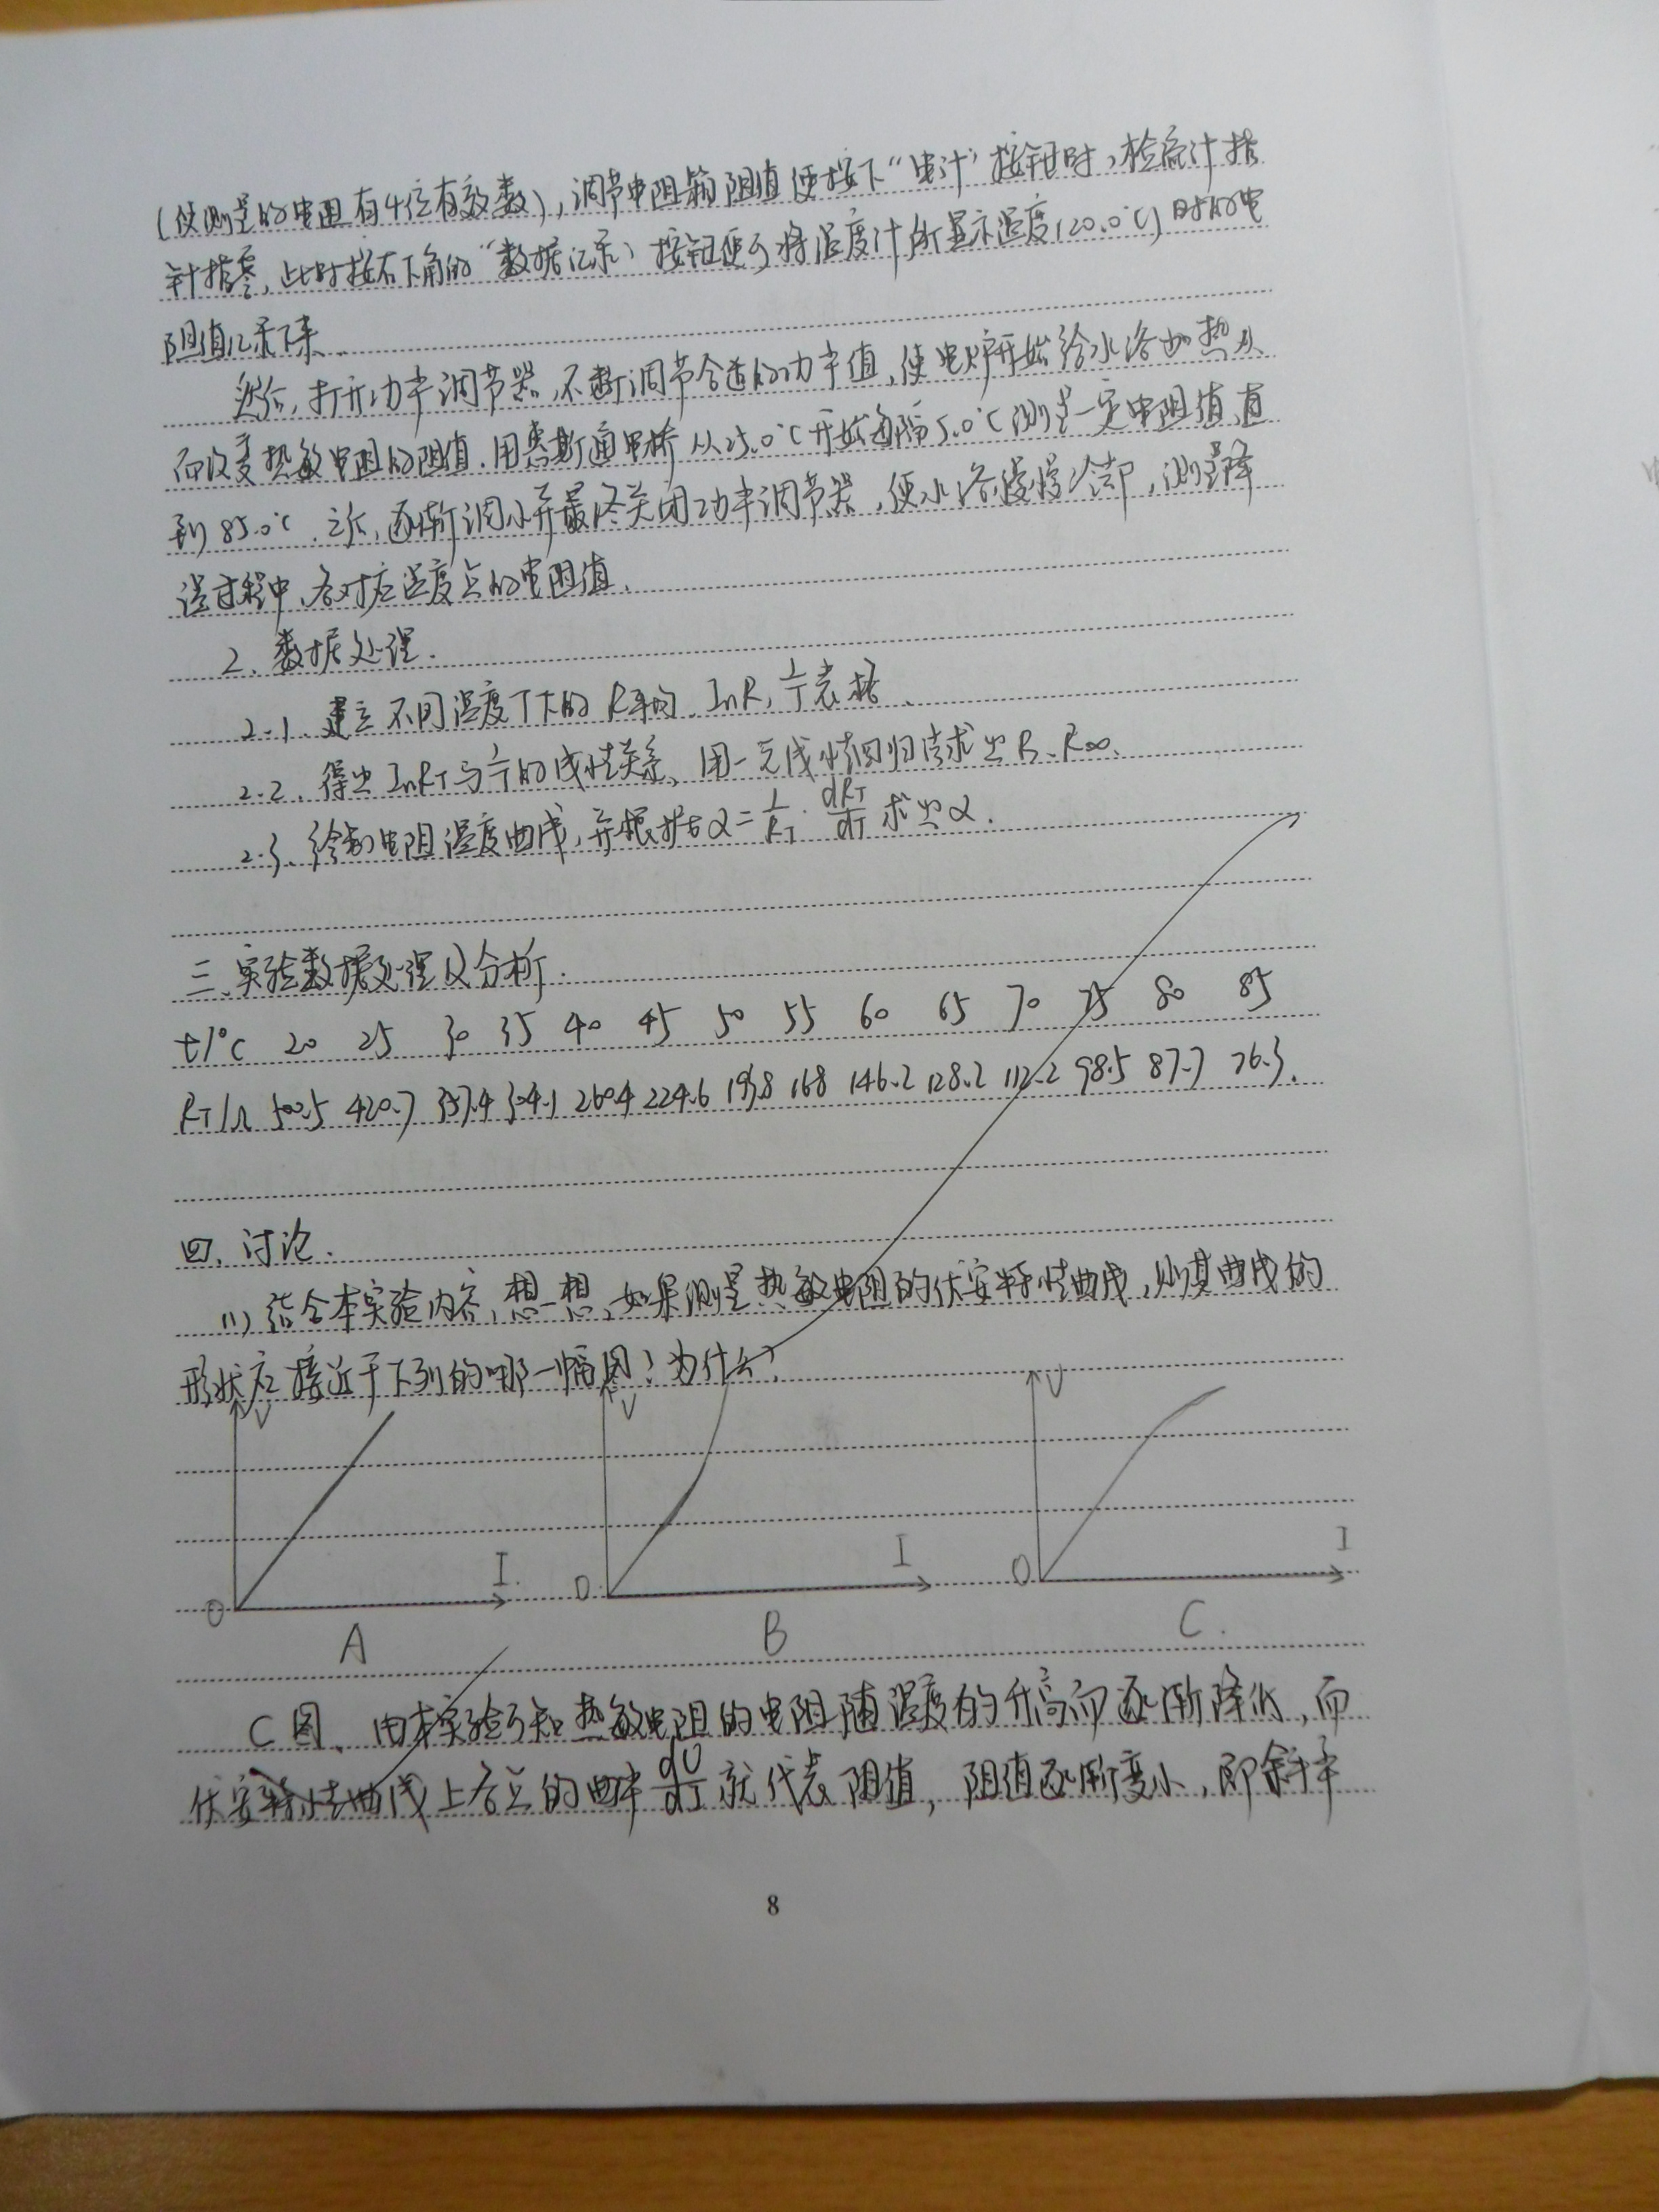 (使测量的电阻有4位有效数),调节电阻箱阻值使按下“电计”按钮时,检流计指
针指零,此时按右下角的“数据记录”按钮便可将温度计所显示温度(20.0℃)时的电
阻值记录下来.
然后,打开功率调节器,不断调节合适的功率值,使电炉开始给水浴加热从
而改变热敏电阻的阻值.用惠斯通电桥从25.0℃开始每隔5.0℃测量一定电阻值,直
到85.0℃.之后,逐渐调小并最终关闭功率调节器,使水浴慢慢冷却,测量降
温过程中,各对应温度点的电阻值.
2.数据处理.
2.1.建立不同温度T下的R平均.lnR,1/T表格.
2.2.得出lnRT与1/T的线性关系,用一元线性回归法求出B、R∞.
2.3.绘制电阻温度曲线,并根据α=1/RT·dRT/dT求出α.
三.实验数据处理及分析.
t/℃ 20 25 30 35 40 45 50 55 60 65 70 75 80 85
RT/Ω 500.5 420.7 357.4 304.1 260.4 224.6 193.8 168 146.2 128.2 112.2 98.5 87.7 76.3.
四.讨论.
(1)结合本实验内容,想一想,如果测量热敏电阻的伏安特性曲线,则其曲线的
形状应接近于下列的哪一幅图?为什么?
V V U
O I. O I O I
A B C.
C图.由本实验可知热敏电阻的电阻随温度的升高而逐渐降低,而
伏安特性曲线上各点的曲率dU/dI就代表阻值,阻值逐渐变小,即斜率
8